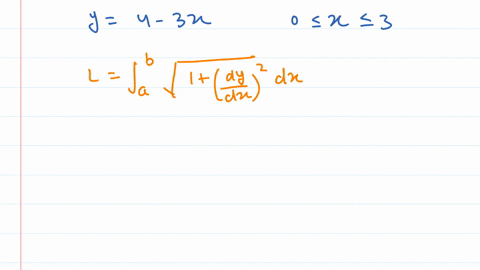 y = 4 - 3x 0 ≤ x ≤ 3
L = ∫_a^b √(1 + (dy/dx)^2) dx